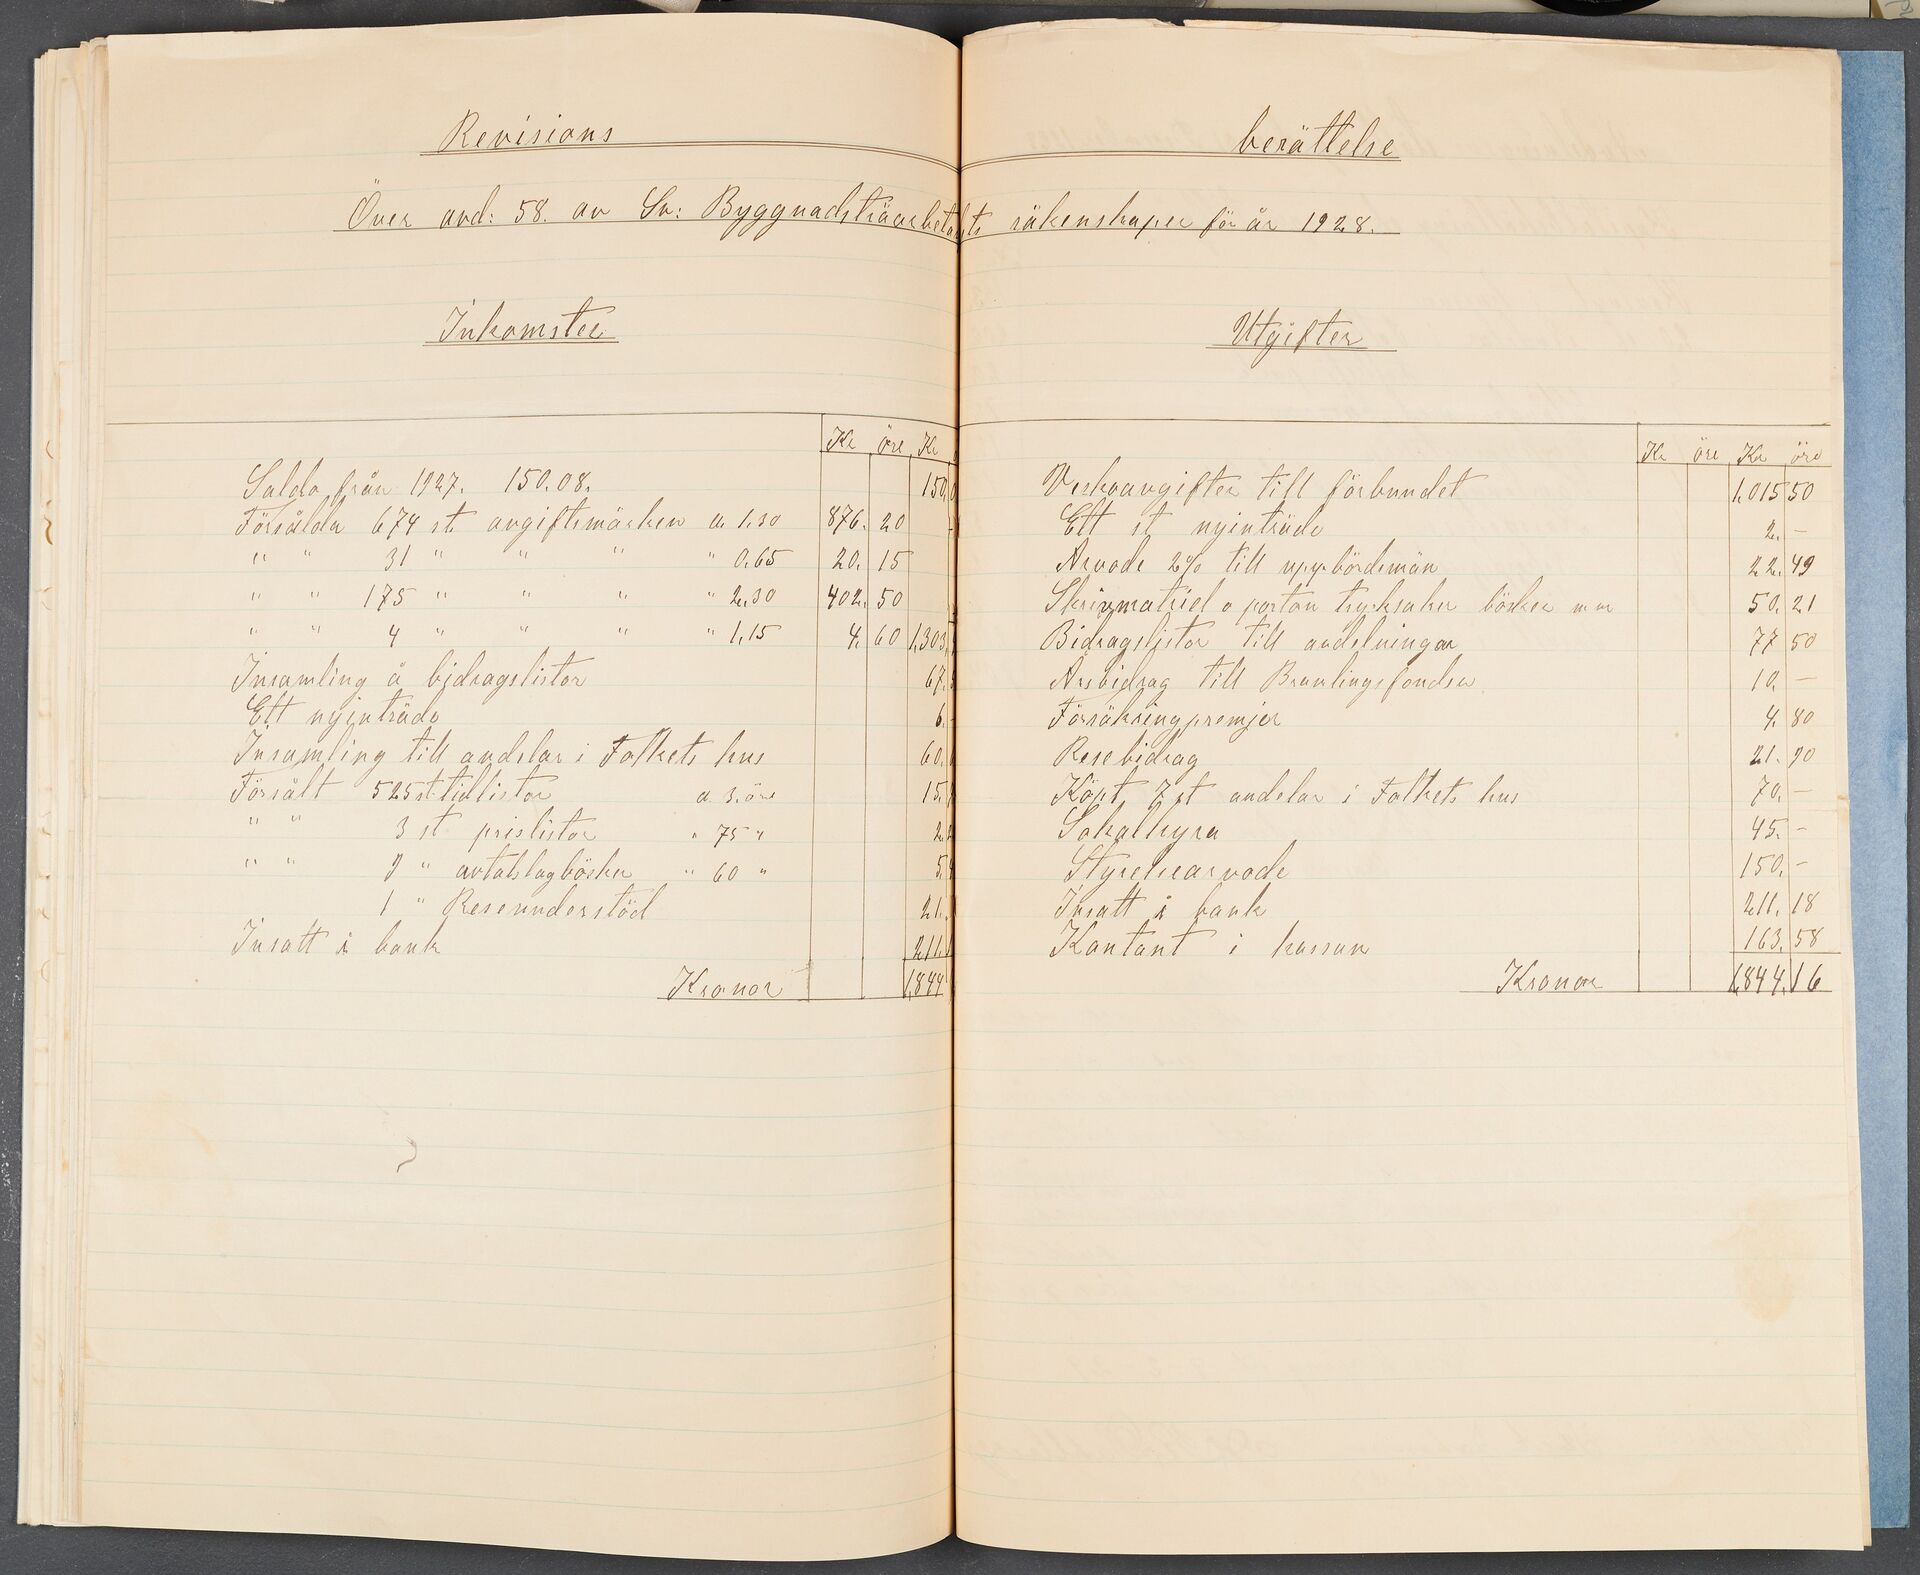 Revisions berättelse
Över avd: 58. av Sv: Byggnadsträarbetarets räkenskaper för år 1928.
Inkomster
Kr öre Kr
Saldo från 1927. 150.08. 150,0
Försålda 674 st. avgiftsmärken a. 1,30 876. 20
" " 31 " " " " 0,65 20. 15
" " 175 " " " " 2,30 402. 50
" " 4 " " " " 1,15 4. 60 1,303,
Insamling å bidragslistor 67.
Ett nyinträde 6.
Insamling till andelar i Folkets hus 60.
Försålt 525 st. tidlistor a 3. öre 15.
" " 3 st prislistor " 75 " 2.
" " 9 " avtalslagböcker " 60 " 5.
1 " Reseunderstöd 21.
Insatt i bank 211.
Kronor 1,844
Utgifter
Kr öre Kr öre
Veckoavgifter till förbundet 1,015 50
Ett st nyinträde 2. –
Arvode 2% till uppbördsmän 22. 49
Skrivmatriel o porton trycksaker böcker m m 50. 21
Bidragslistor till avdelningar 77 50
Årsbidrag till Brantingsfonden 10. –
Försäkringpremjer 4. 80
Resebidrag 21. 90
Köpt 7 st andelar i Folkets hus 70. –
Lokalhyra 45. –
Styrelsearvode 150. –
Insatt i bank 211. 18
Kontant i kassan 163. 58
Kronor 1,844. 16